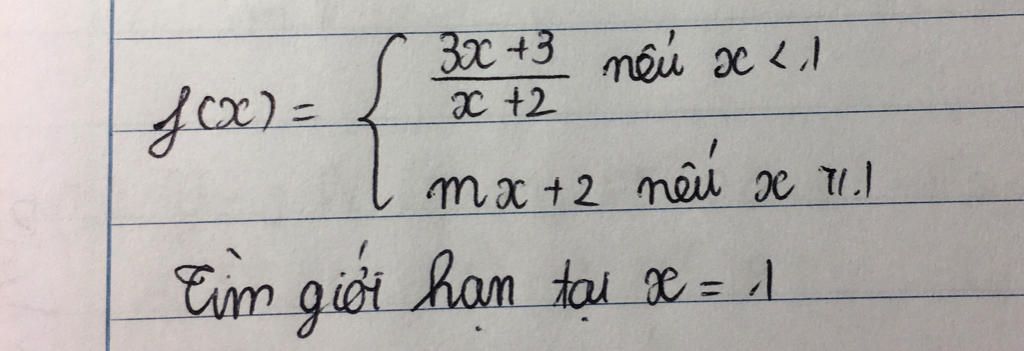 f(x) = { (3x + 3)/(x + 2) nếu x < 1
mx + 2 nếu x ≥ 1
Tìm giới hạn tại x = 1